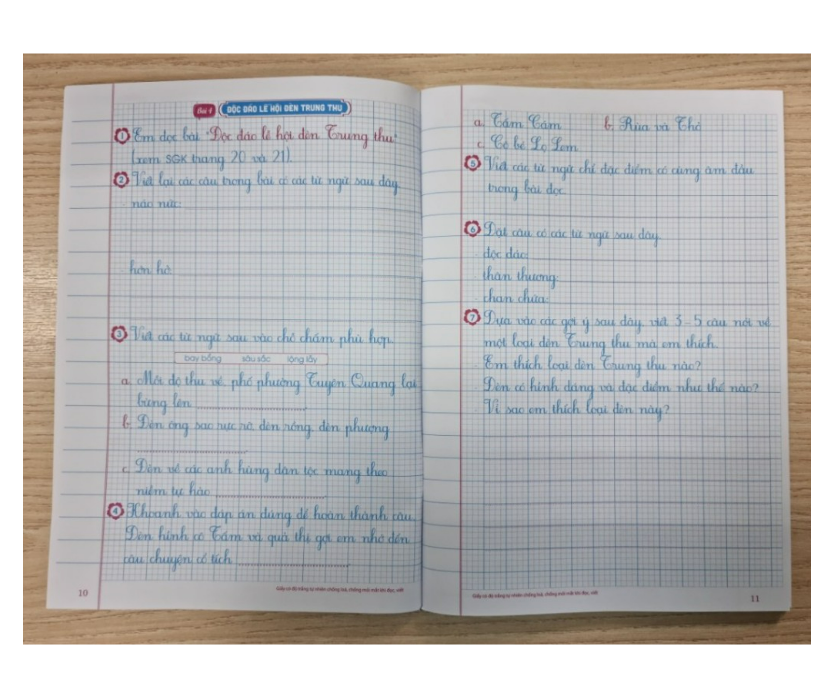 Bài 4 ĐỘC ĐÁO LỄ HỘI ĐÈN TRUNG THU
1 Em đọc bài "Độc đáo lễ hội đèn Trung thu"
(xem SGK trang 20 và 21).
2 Viết lại các câu trong bài có các từ ngữ sau đây
náo nức:
hớn hở:
3 Viết các từ ngữ sau vào chỗ chấm phù hợp.
bay bổng sâu sắc lộng lẫy
a. Mỗi độ thu về, phố phường Tuyên Quang lại
bừng lên
b. Đèn ông sao rực rỡ, đèn rồng, đèn phượng
c. Đèn về các anh hùng dân tộc mang theo
niềm tự hào
4 Khoanh vào đáp án đúng để hoàn thành câu.
Đèn hình cô Tấm và quả thị gợi em nhớ đến
câu chuyện cổ tích
10
Giấy có độ trắng tự nhiên chống loá, chống mỏi mắt khi đọc, viết
a. Tấm Cám b. Rùa và Thỏ
c. Cô bé Lọ Lem
5 Viết các từ ngữ chỉ đặc điểm có cùng âm đầu
trong bài đọc.
6 Đặt câu có các từ ngữ sau đây.
độc đáo:
thân thương:
chan chứa:
7 Dựa vào các gợi ý sau đây, viết 3 - 5 câu nói về
một loại đèn Trung thu mà em thích.
- Em thích loại đèn Trung thu nào?
- Đèn có hình dáng và đặc điểm như thế nào?
- Vì sao em thích loại đèn này?
Giấy có độ trắng tự nhiên chống loá, chống mỏi mắt khi đọc, viết
11